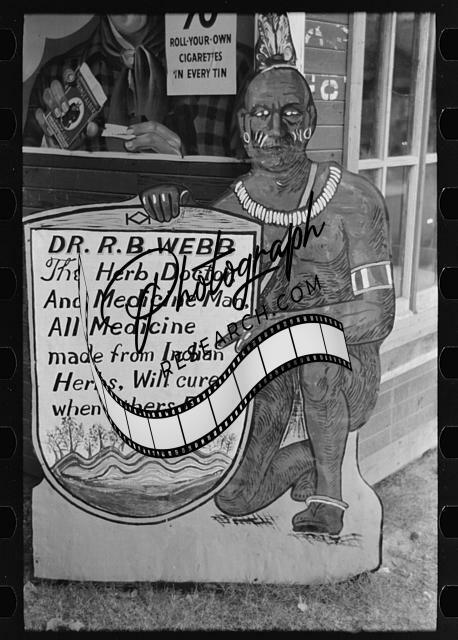 70
ROLL-YOUR-OWN
CIGARETTES
IN EVERY TIN
DR. R.B. WEBB
The Herb Doctor
And Medicine Man.
All Medicine
made from Indian
Herbs, Will cure
when others
Photograph
RESEARCH.COM